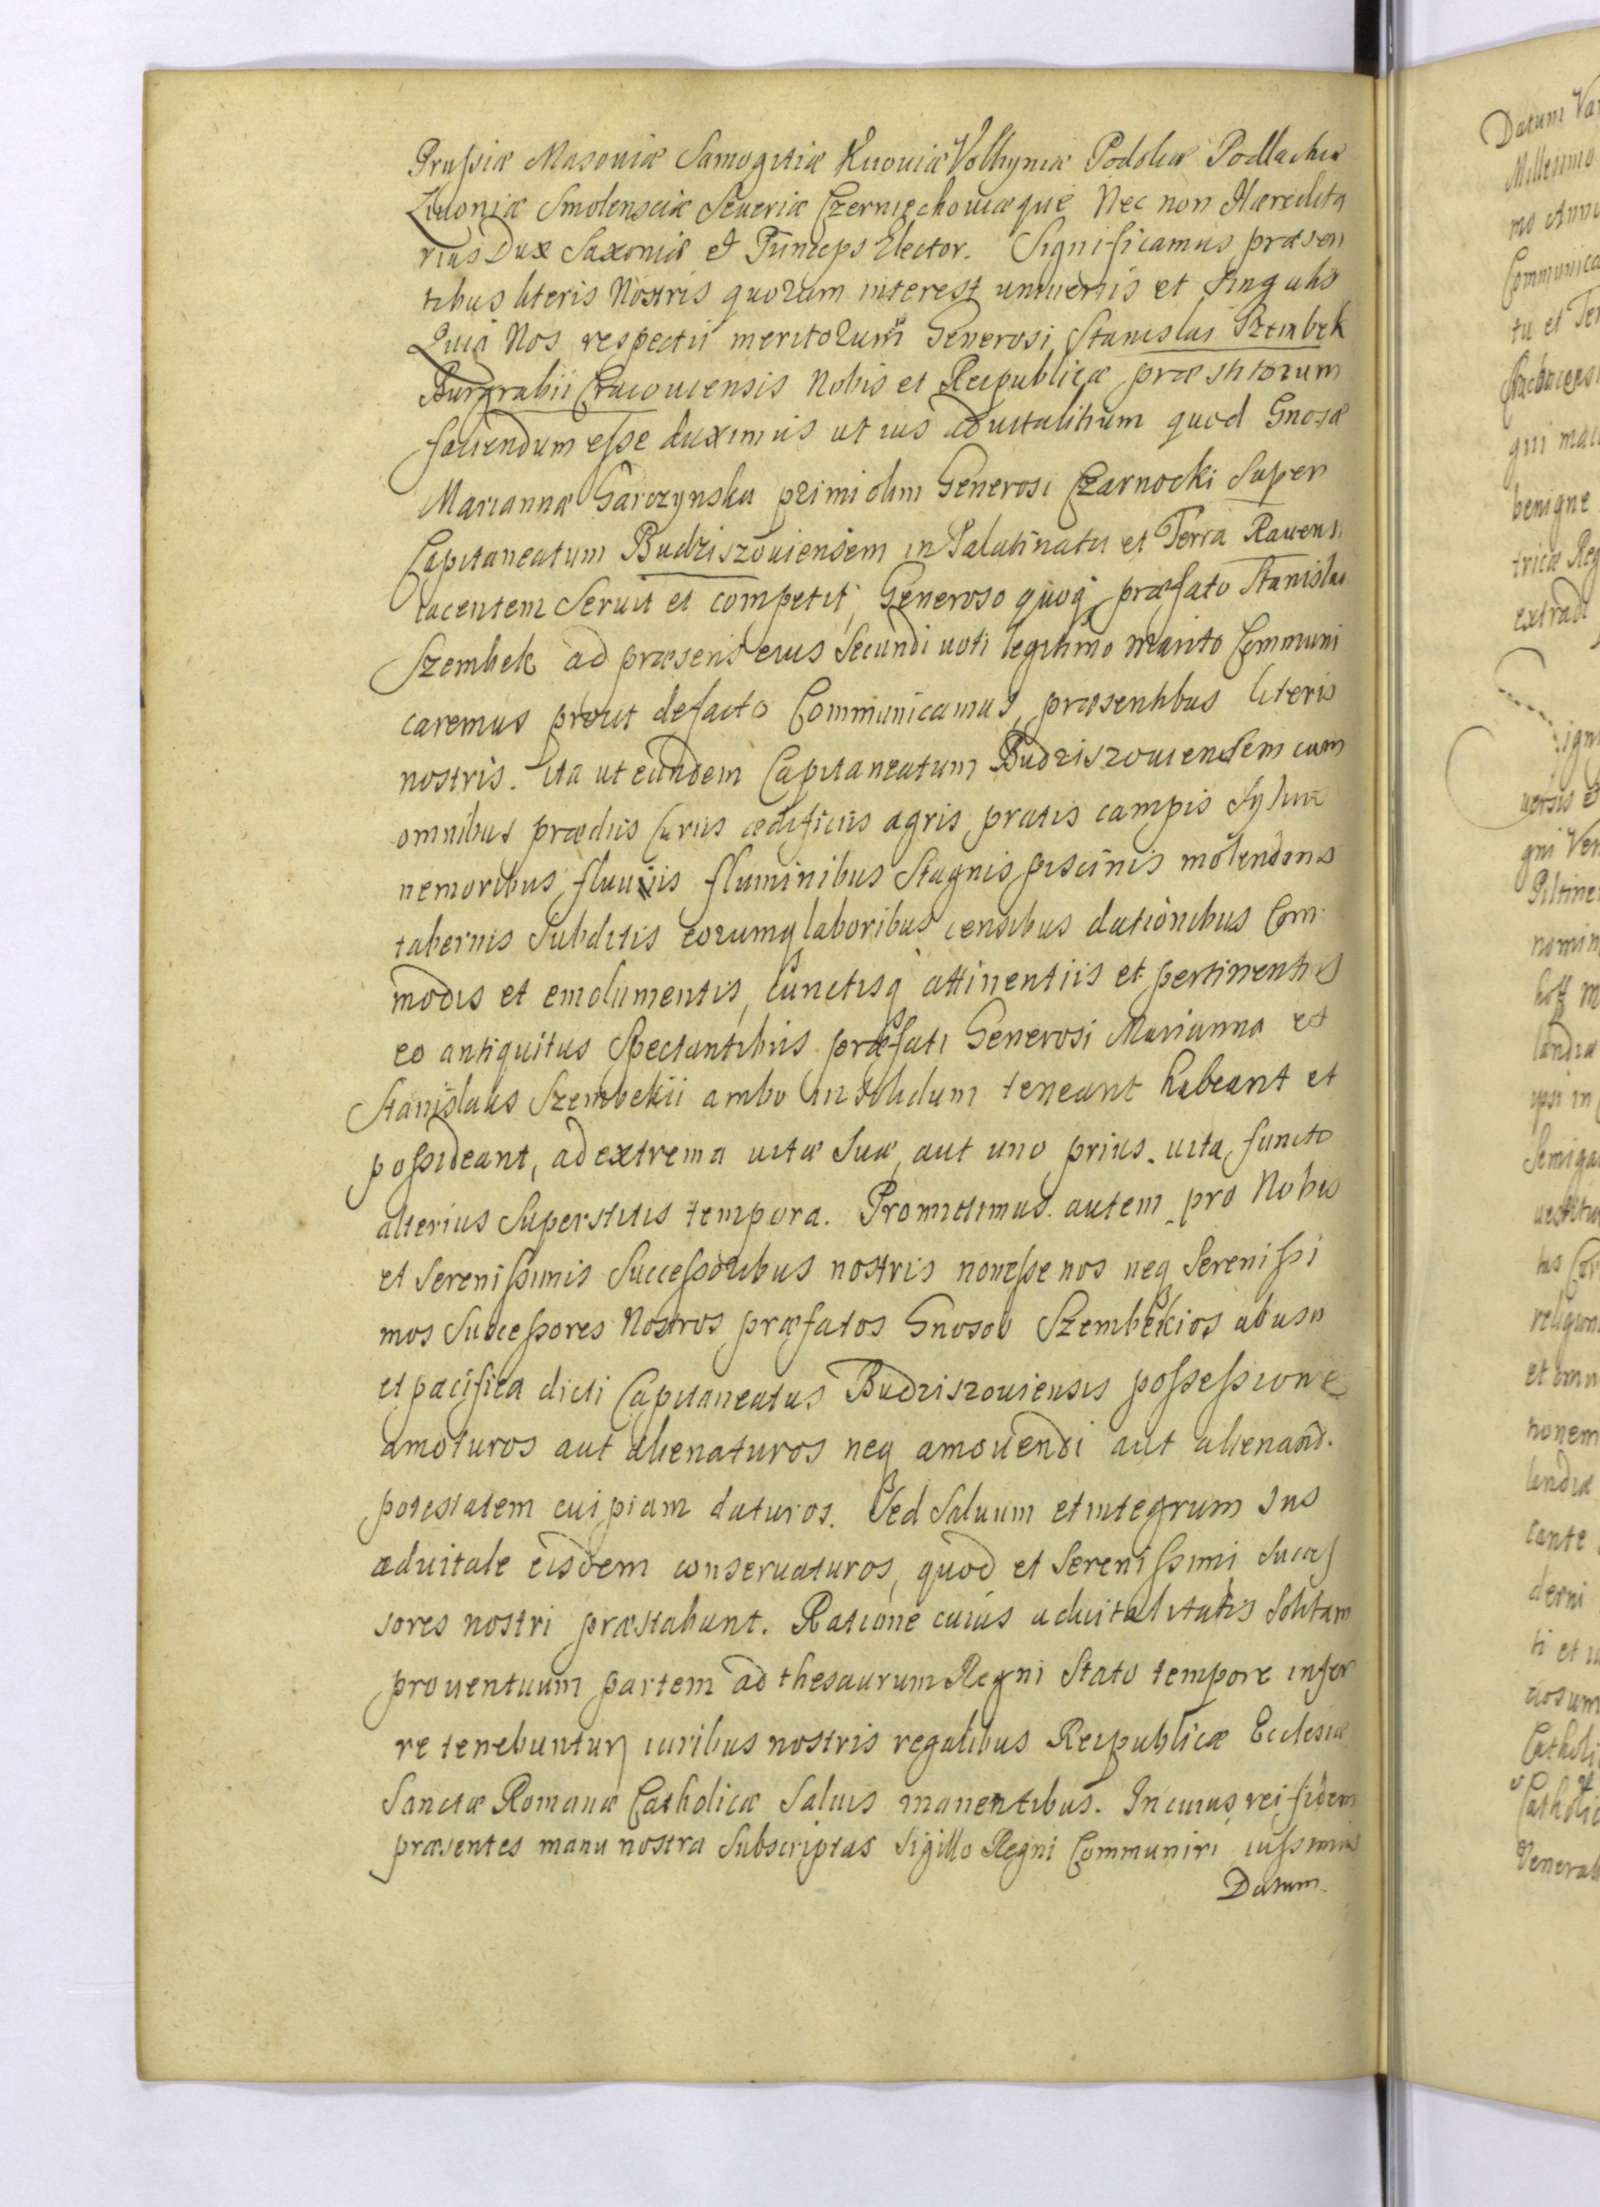 Prussiæ Masoviæ Samogitiæ Kijoviæ Volhyniæ Podoliæ Podlachiæ
Livoniæ Smolensciæ Severiæ Czerniechoviæque Nec non Hæredita
rius Dux Saxoniæ et Princeps Elector. Significamus præsen
tibus literis Nostris quorum interest universis et singulis
Quia Nos respectu meritorum Generosi Stanislai Szembek
Burgrabii Cracoviensis Nobis et Reipublicæ præstitorum
faciendum esse duximus ut ius aduitalitium quod Gnosæ
Mariannæ Garczynska primi olim Generosi Czarnocki super
Capitaneatum Budziszouiensem in Palatinatu et Terra Rauensi
iacentem seruit et competit, Generoso quoq præfato Stanislao
Szembek ad præsens eius secundi uoti legitimo marito Communi
caremus prout defacto Communicamus, præsentibus literis
nostris. Ita ut eundem Capitaneatum Budziszouiensem cum
omnibus prædiis curiis ædificiis agris pratis campis syluis
nemoribus fluuiis fluminibus stagnis piscinis molendinis
tabernis subditis eorumq laboribus censibus dationibus Com
modis et emolumentis, cunctisq attinentiis et pertinentiis
eo antiquitus spectantibus præfati Generosi Marianna et
Stanislaus Szembekii ambo in solidum teneant habeant et
possideant, ad extrema uitæ suæ, aut uno prius uita functo
alterius superstitis tempora. Promittimus autem pro Nobis
et Serenissimis Successoribus nostris non esse nos neq Serenissi
mos Successores Nostros præfatos Gnosos Szembekios ab usu
et pacifica dicti Capitaneatus Budziszouiensis possessione
amoturos aut alienaturos neq amouendi aut alienand.
potestatem cuipiam daturos. Sed saluum et integrum Ius
aduitale eisdem conseruaturos, quod et Serenissimi Succes
sores nostri præstabunt. Ratione cuius aduitalitatis solitam
prouentuum partem ad thesaurum Regni stato tempore infer
re tenebuntur, iuribus nostris regalibus Reipublicæ Ecclesiæ
Sanctæ Romanæ Catholicæ saluis manentibus. In cuius rei fidem
præsentes manu nostra subscriptas Sigillo Regni Communiri iussimus
Datum.
Datum
Millesimo
mo Anno
tu et
gni
benigne
extradi
uersis et
gni
landiæ
ipsi in
religion
et omn
honem
landiæ
cante
derni
ti et